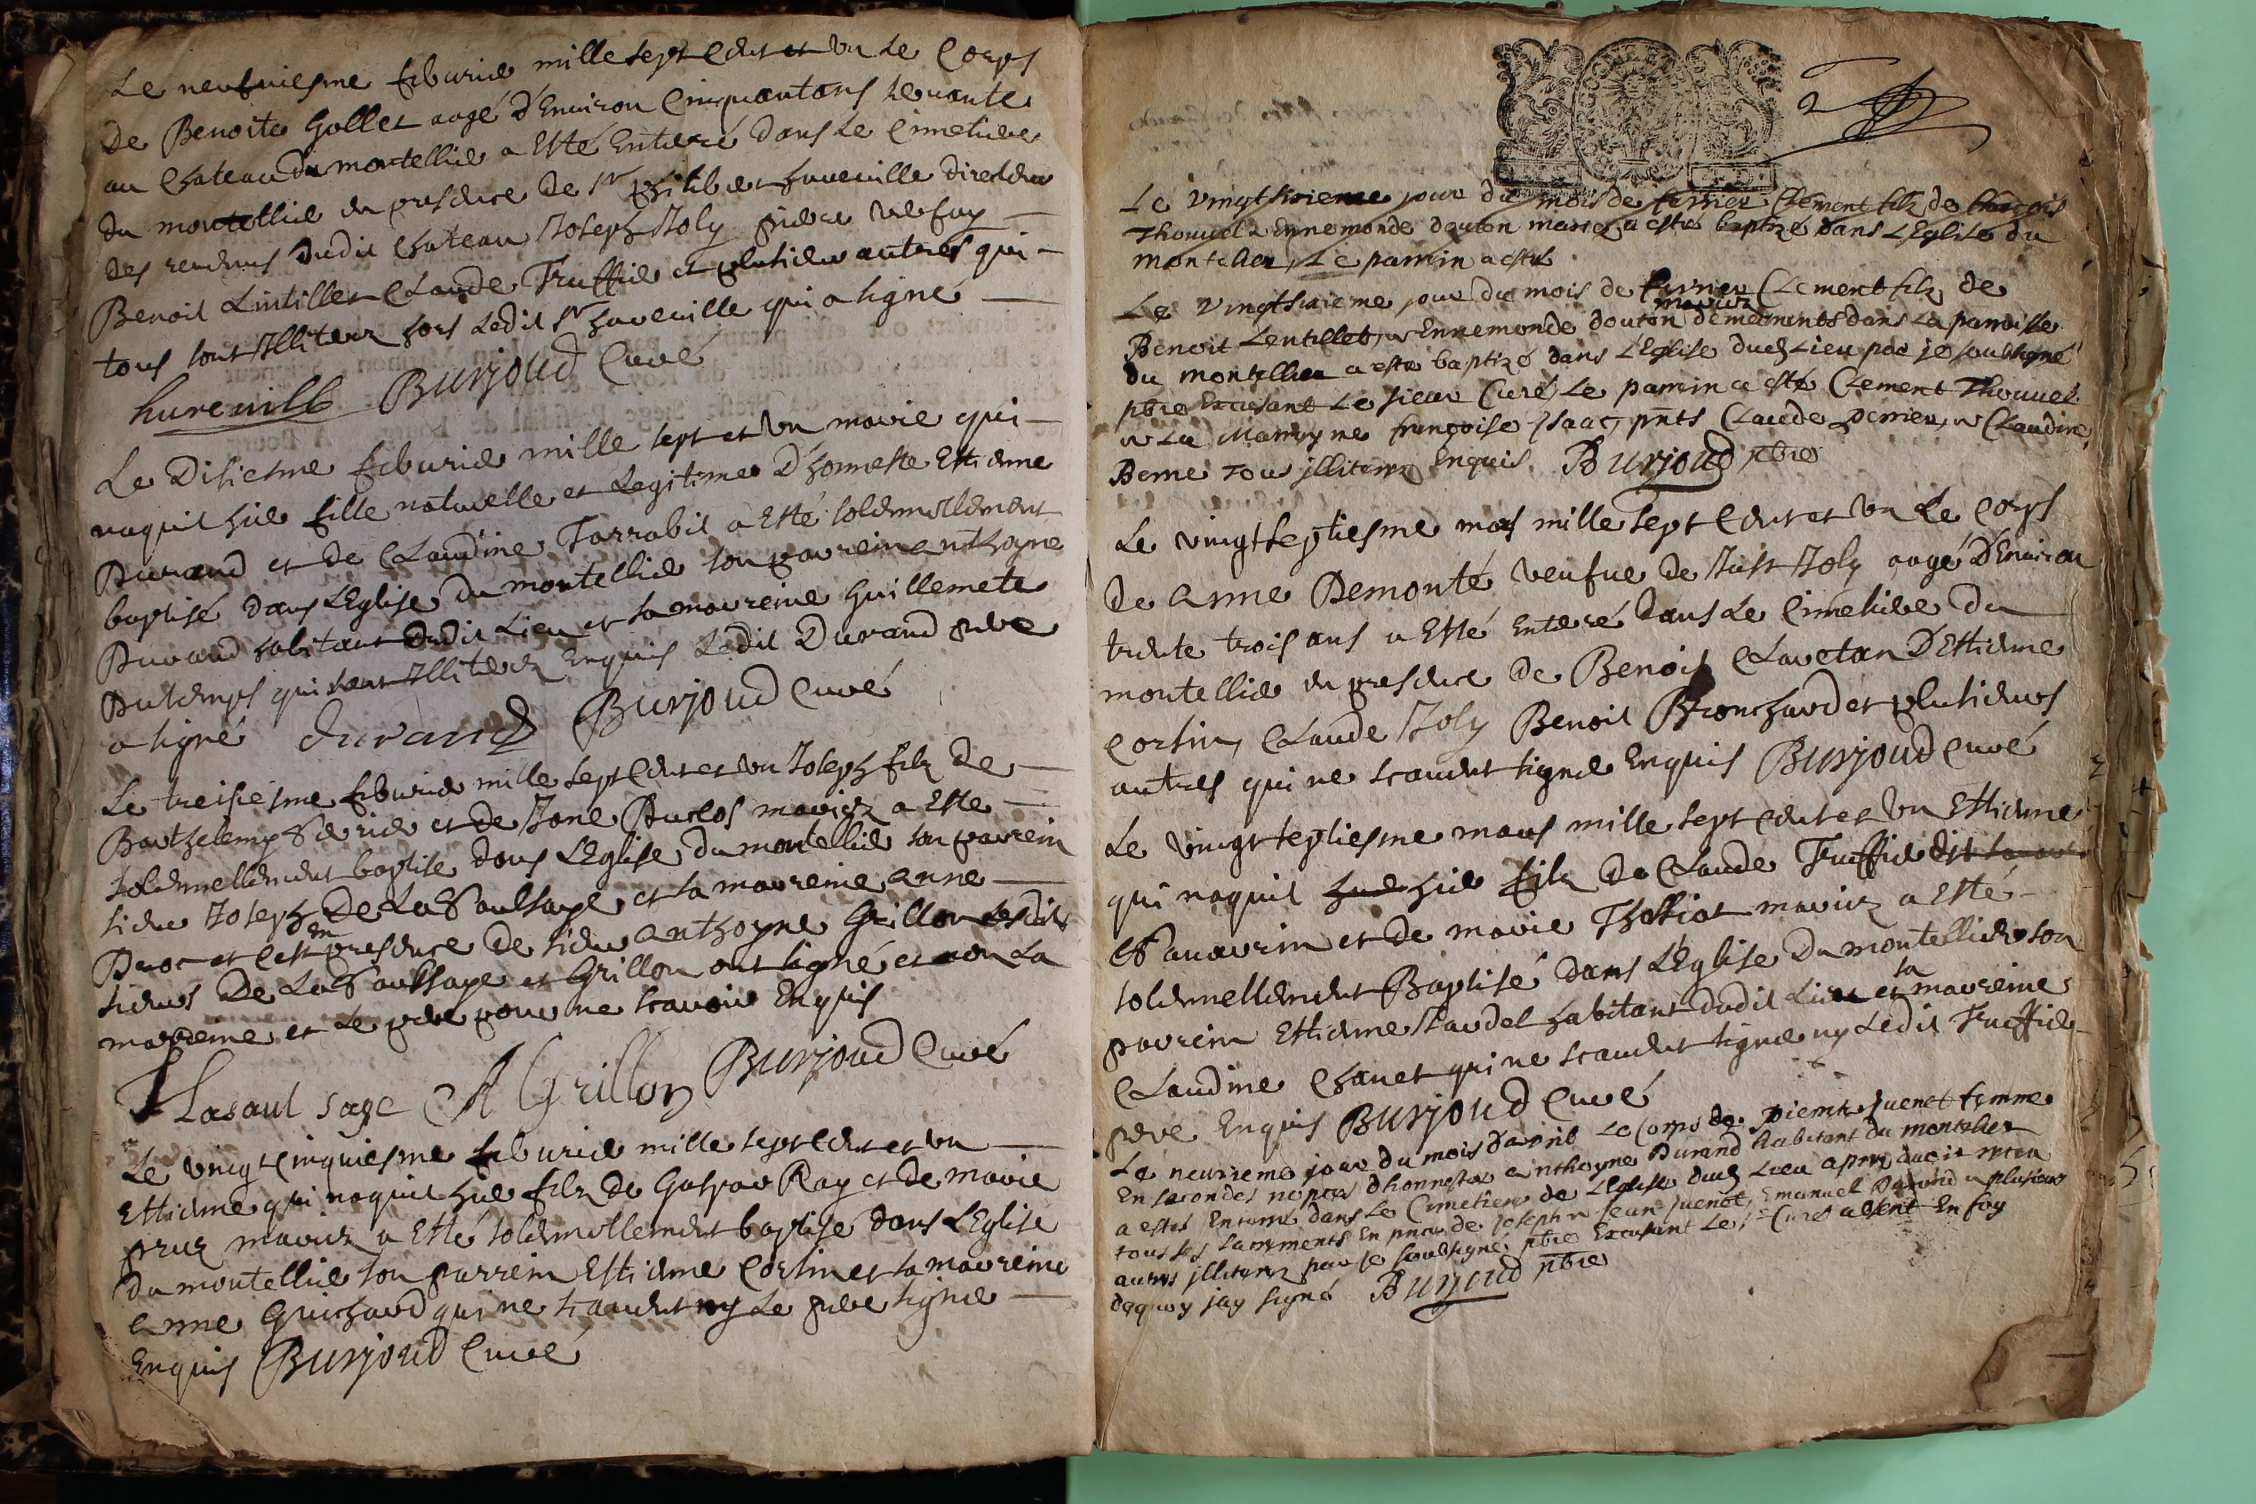 Le neufviesme febvrier mille sept cent et un le corps
de Benoite Gollet aagé d'Environ Cinquantans servante
au Chateau du montellier a Esté Enterré dans le Cimetiere
du montellier en presence de Sr philibert hureville directeur
des rentes dudit Chateau Joseph Joly pierre
Benoit Lintillet Claude Truffier et plusieurs autres qui
tous sont Illiterez hors ledit Sr hureville qui a signé
hureville Burjoud Curé
Le Disiesme febvrier mille sept et un marie qui
naquit hier fille naturelle et Legitime D'honneste Estienne
Durand et de Claudine Tarrabit a Esté solennellement
baptisé dans L'Eglise du montellier son parrein anthoyne
Durand habitant dudit Lieu et sa marreine Guillemete
Dutemps qui sont Illiterez Enquis Ledit Durand pere
a signé durand Burjoud Curé
Le treisiesme febvrier mille sept cent et un Joseph filz de
Barthelemy et de Jane Duclos mariez a Esté
solennellement baptisé dans L'Eglise du montellier son parrein
sieur Joseph De La Saulsaye et sa marreine anne
Droc et cest en presence de sieur anthoyne Grillon lesdits
sieurs De La Saulsaye et Grillon ont signé et non la
marreine et Le pere pour ne scavoir Enquis
Lasaulsaye A Grillon Burjoud Curé
Le vingt Cinquiesme febvrier mille sept cent et un
Estienne qui naquit hier filz de Gaspar Ray et de marie
mariez a Esté solennellement baptisé dans L'Eglise
du montellier son parrein Estienne Corsin et sa marreine
anne Guichard qui ne scavent ny Le pere signer
Enquis Burjoud Curé
2
Le vingtsixieme jour du mois de fevrier Clement filz de
Thouvel & Ennemonde douton mariez a esté baptizé dans L'Eglise du
montelier, Le parrin a esté
Le vingtsixieme jour du mois de fevrier Clement filz de
Benoit Lentillet, & Ennemonde douton mariez demeurants dans La parroisse
du montellier a esté baptizé dans L'Eglise dud Lieu par je soubsigné
pbre Excusant Le sieur Curé, Le parrin a esté Clement Thouvel
& La Marryne françoise Isaac, pnts Claude perrier, & Claudine
Berne Tous jlliterez Enquis. Burjoud pbre
Le vingt septiesme mars mille sept cent et un Le corps
de anne Demonté veufve de Just Joly aagé D'Environ
trente trois ans a Esté Enterré dans Le Cimetiere du
montellier en presence de Benoit Clavetan D'Estienne
Corsin, Claude Joly Benoit Bronchard et plusieurs
autres qui ne scavent signer Enquis Burjoud Curé
Le vingt septiesme mars mille sept cent et un Estienne
qui naquit hier hier filz de Claude Truffier dit
et de marie Thossiat mariez a Esté
solennellement Baptisé dans L'Eglise Du montellier son
parrein Estienne habitant dudit Lieu et sa marreine
Claudine Chanet qui ne scavent signer ny Ledit Truffier
pere Enquis Burjoud Curé
Le neuvieme jour du mois d'avril Le Corps de pierrete Juenet femme
En secondes nopces d'honneste anthoyne Durand habitant du montelier
a esté Enterré dans Le Cimetiere de L'Eglise dud Lieu apres avoir receu
tous les sacrements En pnce de Joseph & Jean Juenet, Emanuel Durand & plusieurs
autres jlliterez par je soubsigné pbre Excusant Le Sr Curé absent En foy
dequoy jay signé Burjoud pbre